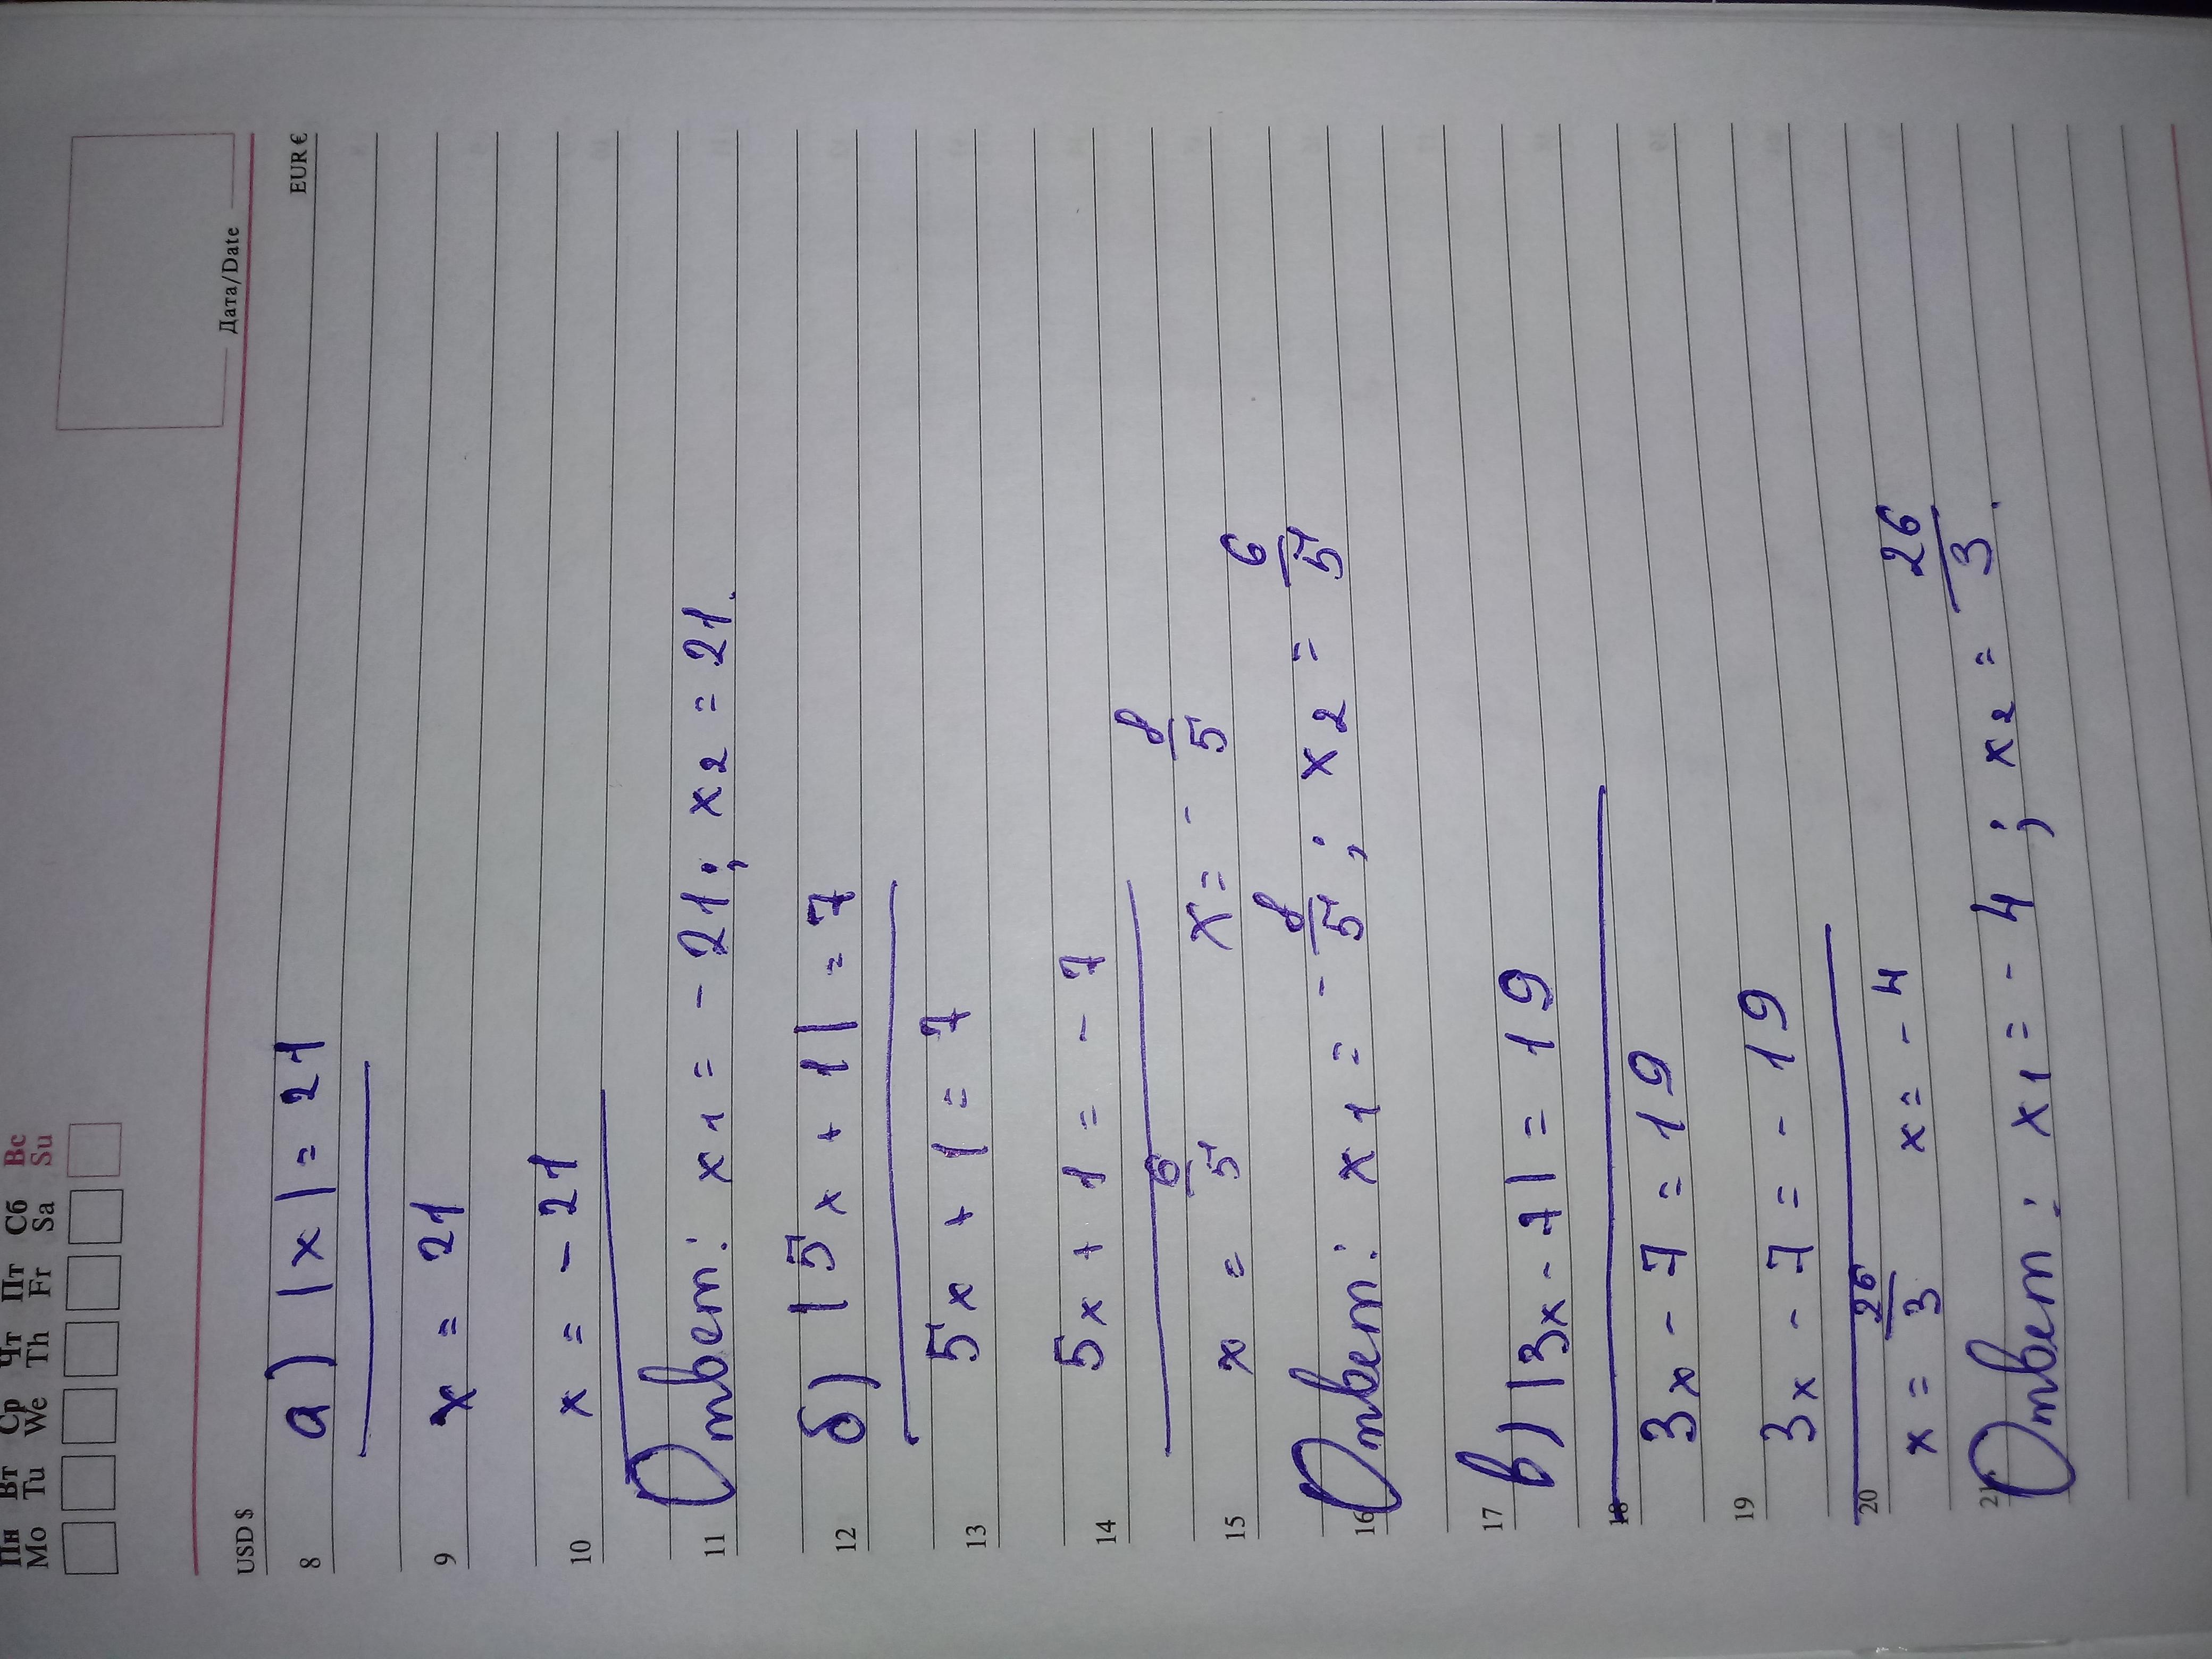 Пн Вт Ср Чт Пт Сб Вс
Mo Tu We Th Fr Sa Su
Дата/Date
USD $ EUR €
8 а) |x| = 21
9 x = 21
10 x = - 21
11 Ответ: x₁ = - 21; x₂ = 21.
12 б) |5x + 1| = 7
13 5x + 1 = 7
14 5x + 1 = - 7
15 x = 6/5 x = - 8/5
16 Ответ: x₁ = - 8/5; x₂ = 6/5
17 в) |3x - 7| = 19
18 3x - 7 = 19
19 3x - 7 = - 19
20 x = 26/3 x = - 4
21 Ответ: x₁ = - 4; x₂ = 26/3.